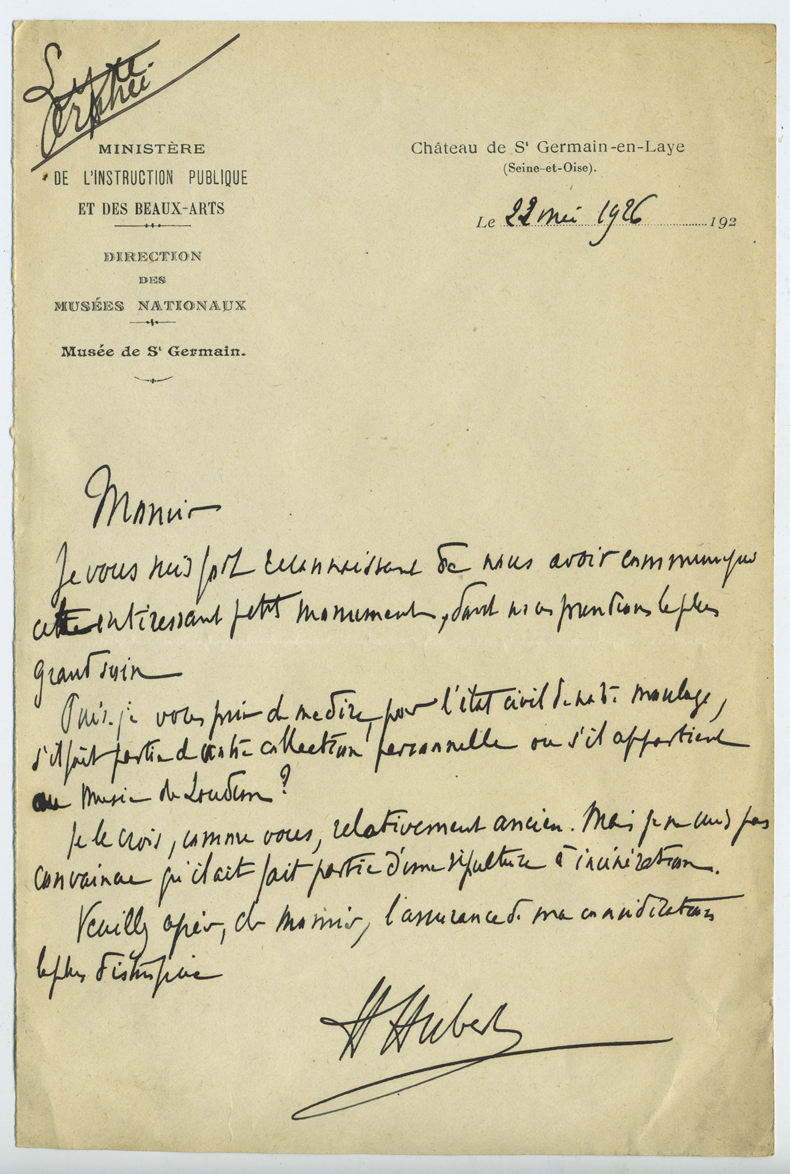 Orphée
MINISTÈRE
DE L'INSTRUCTION PUBLIQUE
ET DES BEAUX-ARTS
DIRECTION
DES
MUSÉES NATIONAUX
Musée de St Germain.
Château de St Germain-en-Laye
(Seine-et-Oise).
Le 22 mai 1926 192
Monsieur
Je vous suis fort reconnaissant de nous avoir communiqué
cette intéressant petit monument, dont nous prendrons le plus
grand soin
Puis-je vous prier de me dire, pour l'état civil de notre moulage,
s'il fait partie de votre collection personnelle ou s'il appartient
au Musée de Loudun ?
Je le crois, comme vous, relativement ancien. Mais je ne suis pas
convaincu qu'il ait fait partie d'une sépulture à incinération.
Veuillez agréer, cher Monsieur, l'assurance de ma considération
la plus distinguée
H Hubert